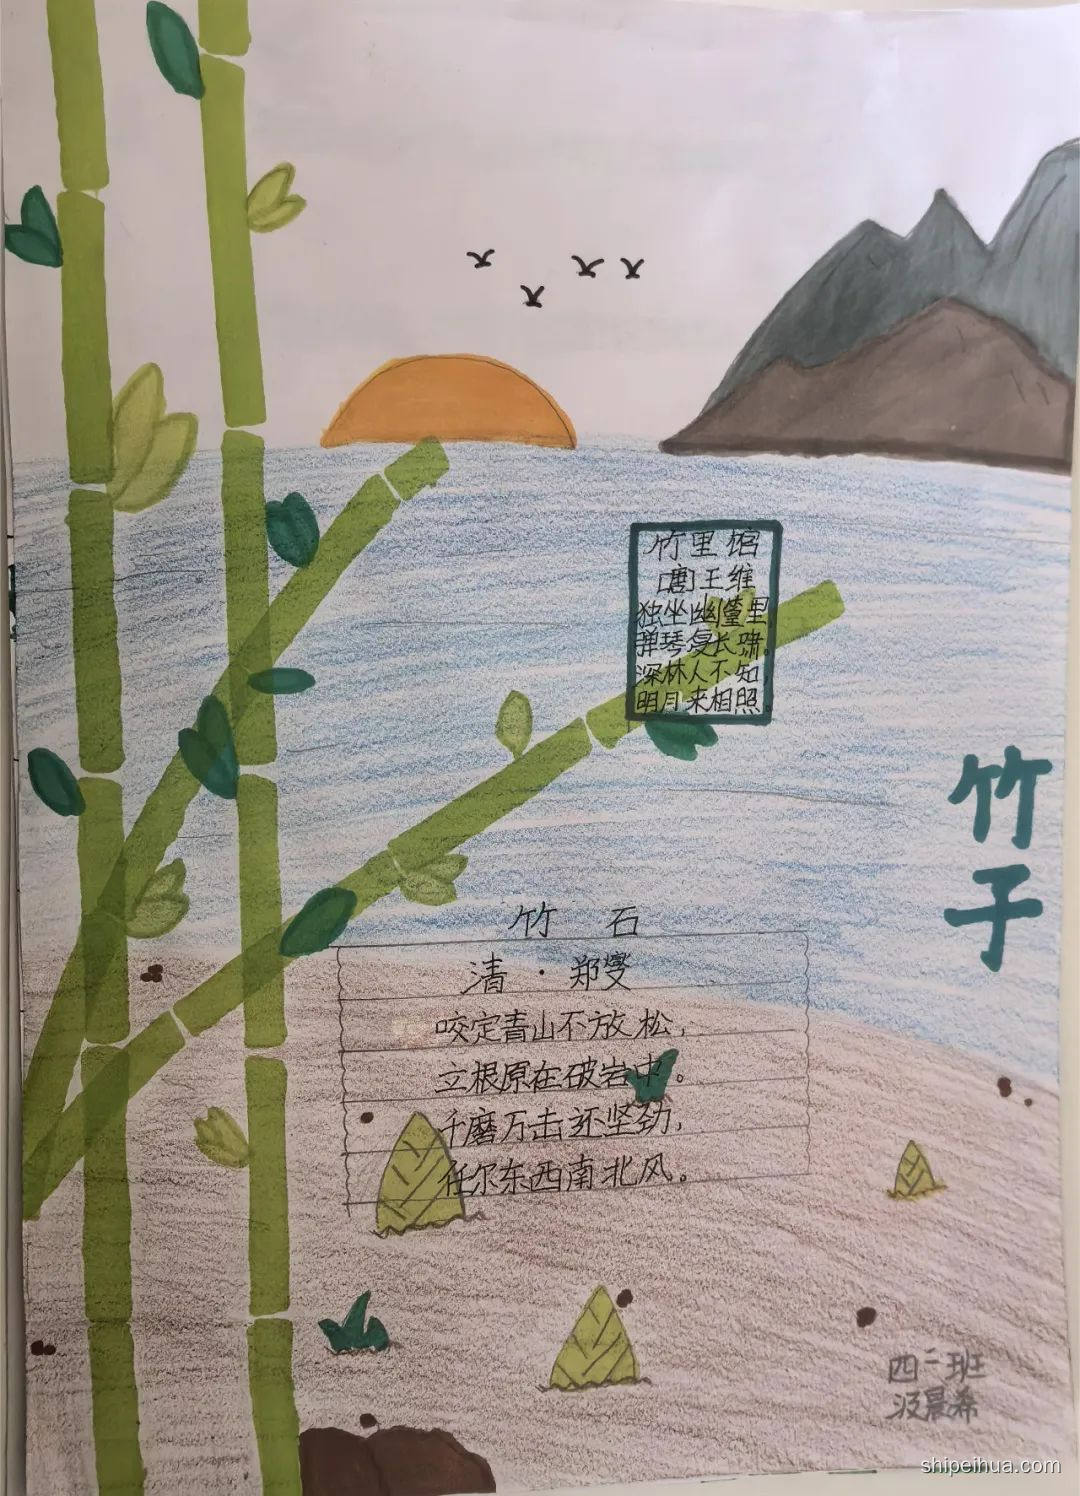 竹里馆
[唐]王维
独坐幽篁里
弹琴复长啸。
深林人不知,
明月来相照
竹子
竹 石
清·郑燮
咬定青山不放松,
立根原在破岩中。
千磨万击还坚劲,
任尔东西南北风。
四二班
汲晨希
shipeihua.com